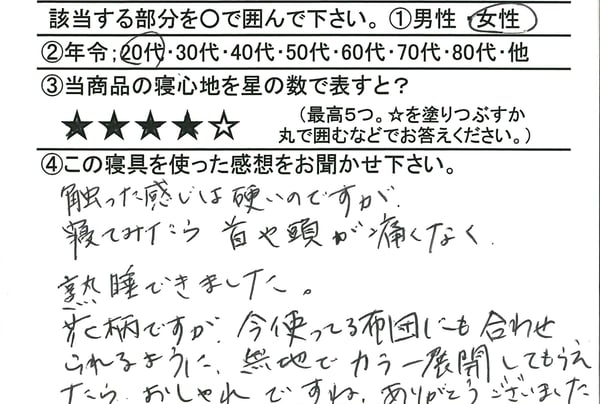 該当する部分を○で囲んで下さい。①男性・女性
②年令；20代・30代・40代・50代・60代・70代・80代・他
③当商品の寝心地を星の数で表すと？
★★★★☆
（最高5つ。☆を塗りつぶすか
丸で囲むなどでお答えください。）
④この寝具を使った感想をお聞かせ下さい。
触った感じは硬いのですが、
寝てみたら首や頭が痛くなく、
熟睡できました。
柄ですが、今使ってる布団にも合わせ
られるように、無地でカラー展開してもらえ
たら、おしゃれですね。ありがとうございました